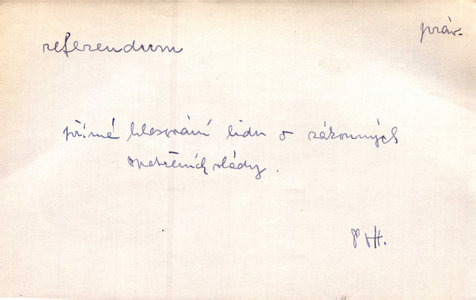 práv.
referendum
přímé hlasování lidu o zákonných
opatřeních vlády.